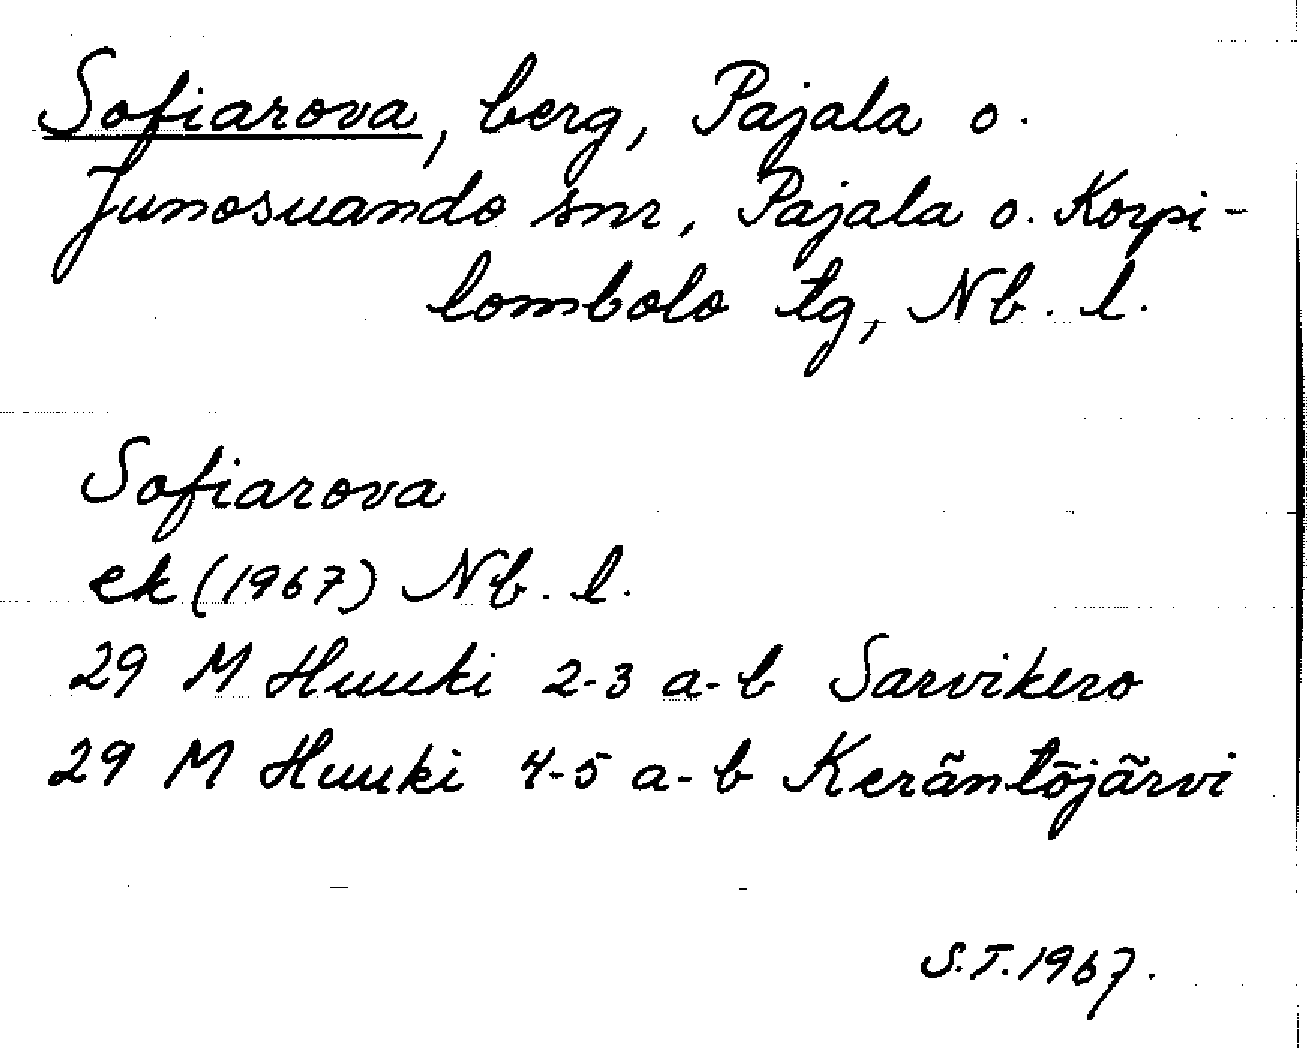 Sofiarova, berg, Pajala o.
Junosuando snr, Pajala o. Korpi-
lombolo tg, Nb. l.
Sofiarova
ek (1967) Nb. l.
29 M Huuki 2-3 a-b Sarvikero
29 M Huuki 4-5 a-b Keräntöjärvi
S.T. 1967.